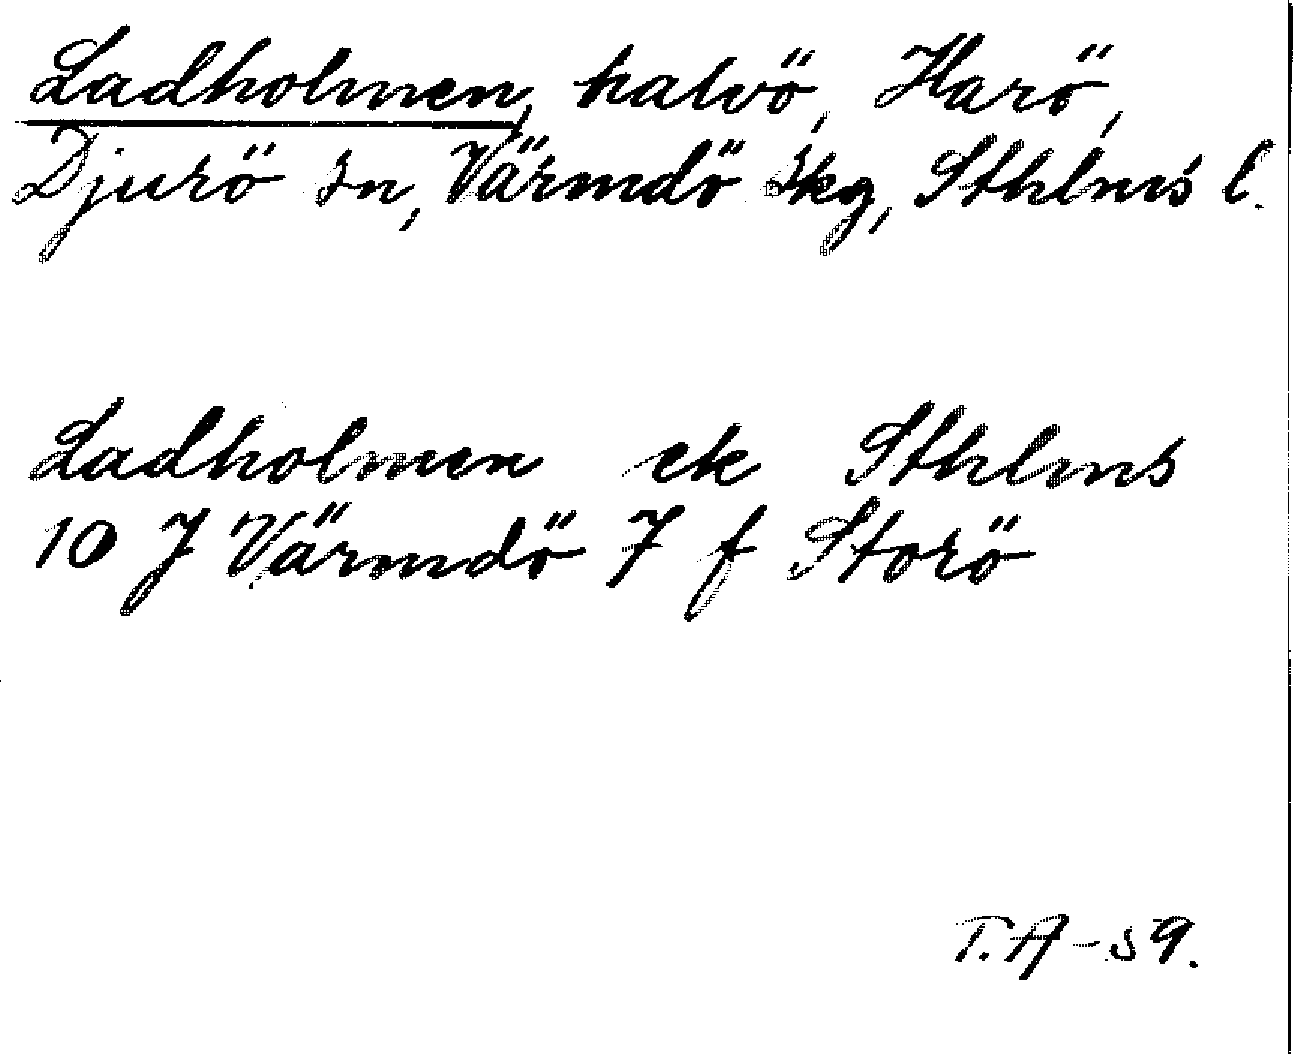 Ladholmen, halvö, Harö,
Djurö sn, Värmdö skg, Sthlms l.
Ladholmen ek Sthlms
10 J Värmdö 7 f Storö
T.A-59.